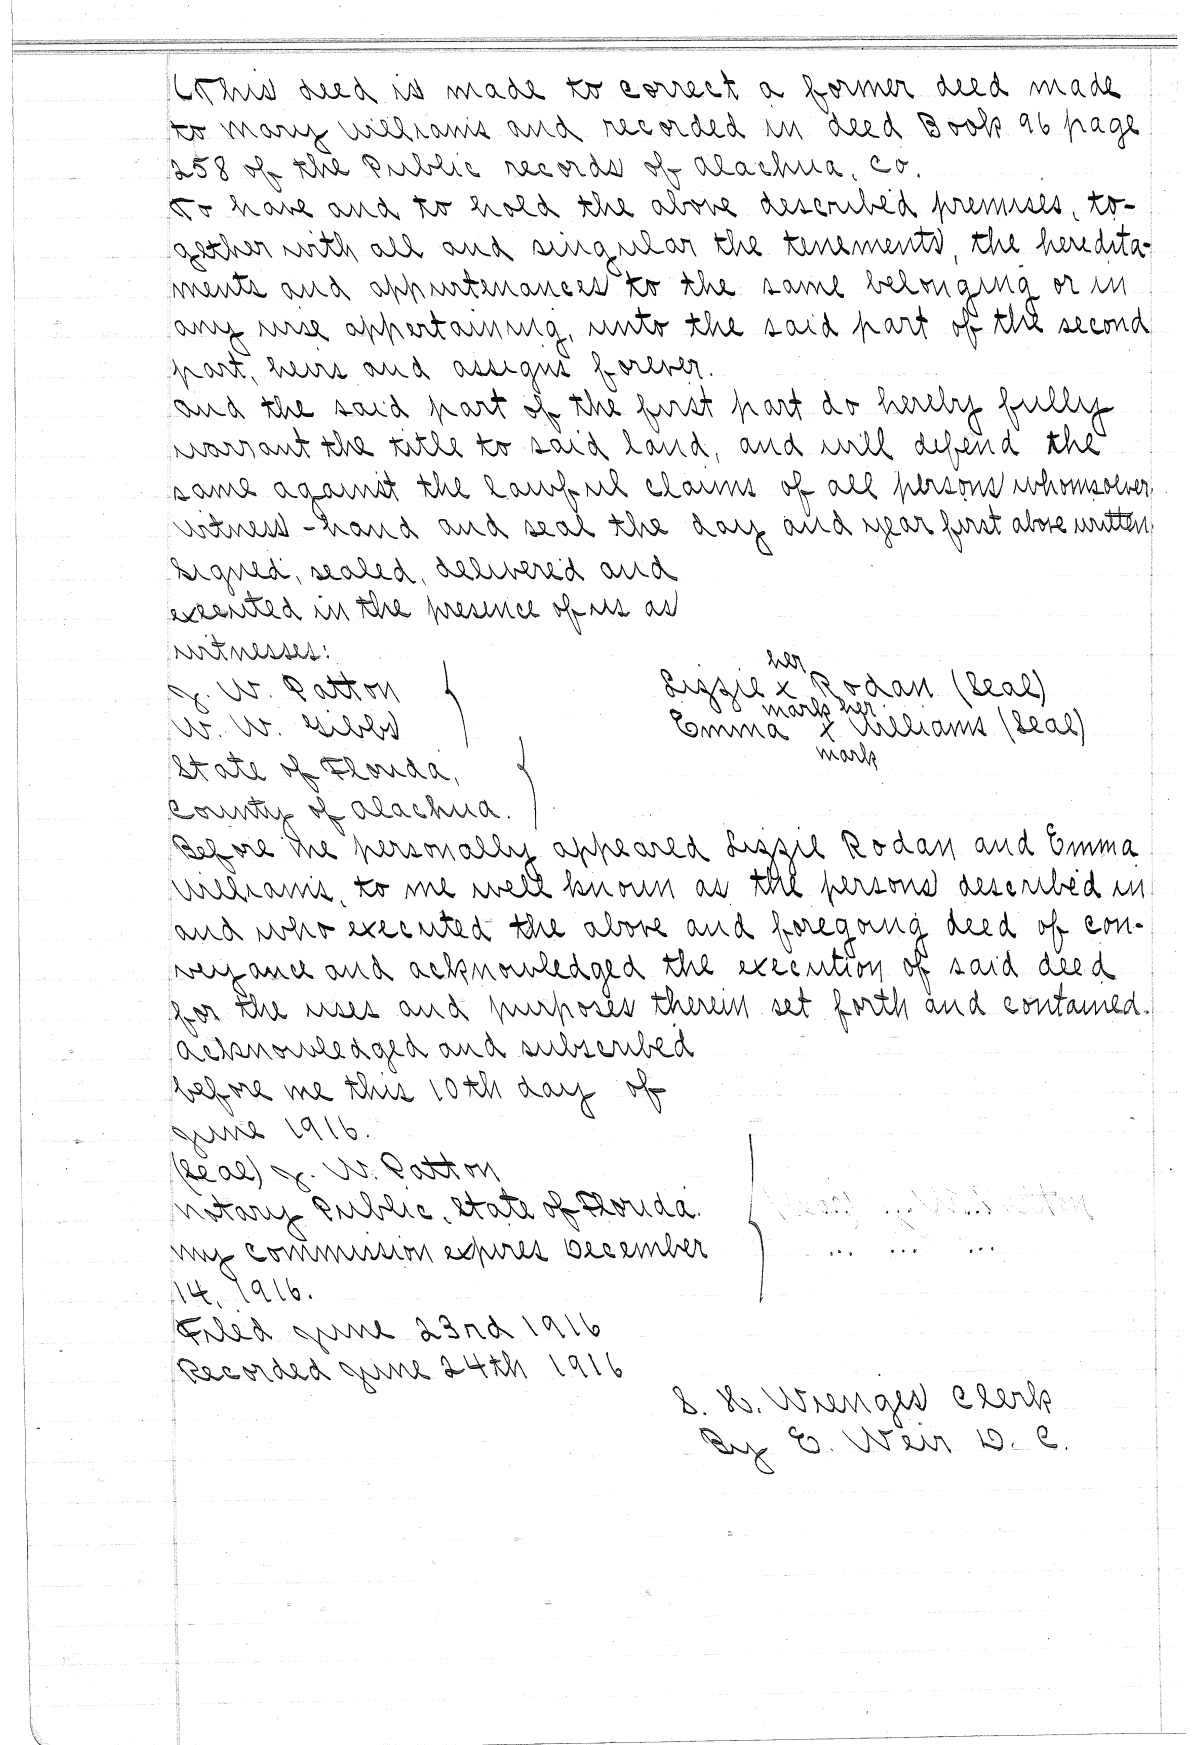 This deed is made to correct a former deed made
to Mary Williams and recorded in deed Book 96 page
258 of the Public records of Alachua, Co.
To have and to hold the above described premises, to-
gether with all and singular the tenements, the heredita-
ments and appurtenances to the same belonging or in
any wise appertaining, unto the said part of the second
part, heirs and assigns forever.
and the said part of the first part do hereby fully
warrant the title to said land, and will defend the
same against the lawful claims of all persons whomsoever,
witness - hand and seal the day and year first above written
Signed, sealed, delivered and
executed in the presence of us as
witnesses:
her
J. W. Patton Lizzie x Rodan (Seal)
mark her
W. W. Gibbs Emma x Williams (Seal)
mark
State of Florida,
County of Alachua.
Before me personally appeared Lizzie Rodan and Emma
Williams, to me well known as the persons described in
and who executed the above and foregoing deed of con-
veyance and acknowledged the execution of said deed
for the uses and purposes therein set forth and contained.
acknowledged and subscribed
before me this 10th day of
June 1916.
(Seal) J. W. Patton
Notary Public, State of Florida.
My commission expires December
14, 1916.
Filed June 23rd 1916
Recorded June 24th 1916
S. H. Wienges Clerk
By E. Weir D. C.